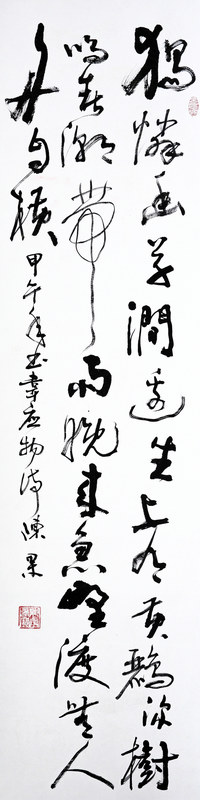 獨憐幽草澗邊生上有黃鸝深樹
鳴春潮帶雨晚來急野渡無人
舟自橫甲午年書韋應物詩陳果